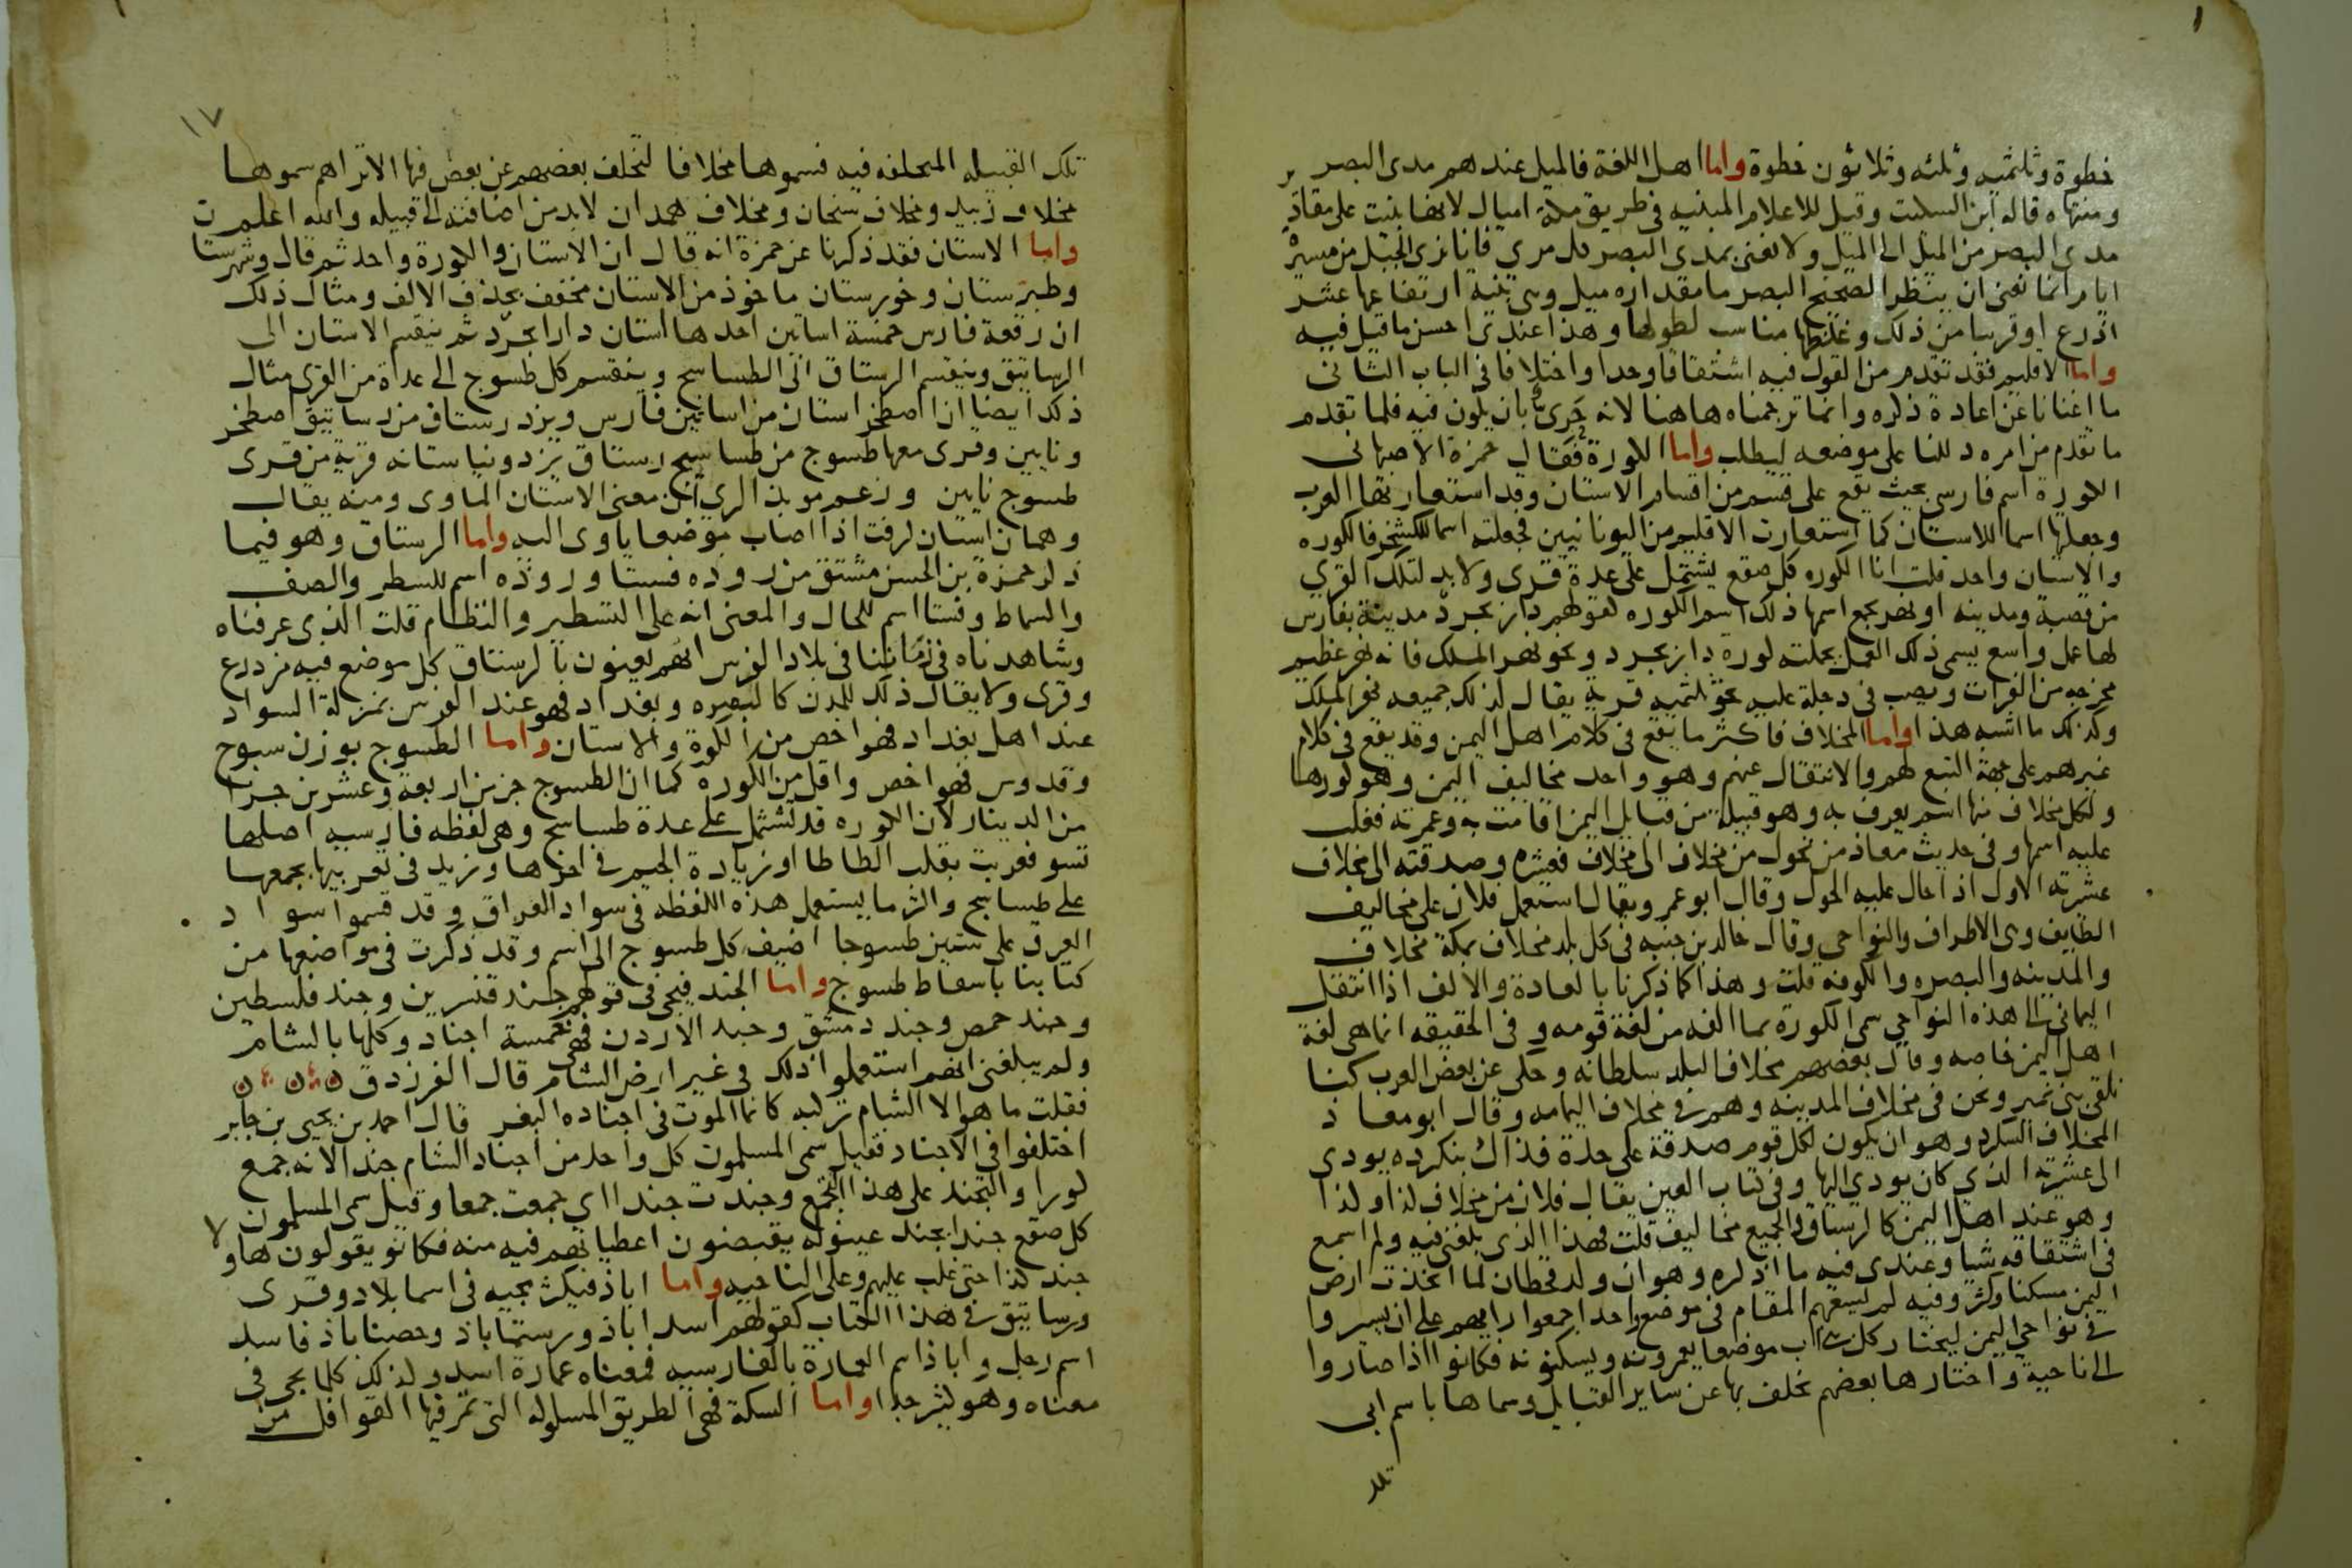 خطوة وثلثميه وثلثه وثلاثون خطوة واما اهل اللغة فالميل عندهم مدى البصر
ومنتهاه قاله ابن السكيت وقيل للاعلام المبنيه فى طريق مكة اميال لانها بنيت على مقادير
مدى البصر من الميل الى الميل ولا نعنى بمدى البصر كل مرى فانا نرى الجبل من مسيرة
ايام انما نعنى ان ينظر الصحيح البصر ما مقداره ميل وهى بنية ارتفاعها عشر
اذرع او قريبا من ذلك وغلظها مناسب لطولها وهذا عندى احسن ما قيل فيه
واما الاقليم فقد تقدم من القول فيه اشتقاقا وحدا واختلافا فى الباب الثانى
ما اغنانا عن اعادة ذكره وانما ترجمناه هاهنا لانه حرى بان يكون فيه فلما تقدم
ما تقدم من امره دللنا على موضعه ليطلب واما الكورة فقال حمزة الاصبهانى
الكورة اسم فارسى بحيث يقع على قسم من اقسام الاستان وقد استعارتها العرب
وجعلها اسما للاستان كما استعارت الاقليم من اليونانيين فجعلته اسما للكشخر فالكوره
والاستان واحد قلت انا الكوره كل صقع يشتمل على عدة قرى ولا بد لتلك القرى
من قصبة ومدينه او نهر يجمع اسمها ذلك اسم الكوره كقولهم دار بجرد مدينة بفارس
لها عمل واسع يسمى ذلك العمل بجملته كورة دار بجرد ونحو نهر الملك فانه نهر عظيم
مخرجه من الفرات ويصب فى دجلة عليه نحو ثلثميه قرية يقال لذلك جميعه نهر الملك
وكذلك ما اشبه هذا واما المخلاف فاكثر ما يقع فى كلام اهل اليمن وقد يقع فى كلام
غيرهم على جهة التبع لهم والانتقال عنهم وهو واحد مخاليف اليمن وهو كورها
ولكل مخلاف منها اسم يعرف به وهو قبيلة من قبايل اليمن اقامت به وعمرته فغلب
عليه اسمها وفى حديث معاذ من تحول من مخلاف الى مخلاف فعشره وصدقته الى مخلاف
عشرته الاول اذا حال عليه الحول وقال ابو عمر ويقال استعمل فلان على مخاليف
الطايف وهى الاطراف والنواحى وقال خالد بن جنبه فى كل بلد مخلاف بمكة مخلاف
والمدينه والبصره والكوفه قلت وهذا كما ذكرنا بالعادة والالف اذا انتقل
اليمانى الى هذه النواحى سمى الكورة بما الفه من لغة قومه وفى الحقيقه انما هى لغة
اهل اليمن خاصه وقال بعضهم مخلاف البلد سلطانه وحكى عن بعض العرب كنا
نلقى بنى نمير ونحن فى مخلاف المدينه وهم فى مخلاف اليمامه وقال ابو معاذ
المخلاف البنكرد وهو ان يكون لكل قوم صدقة على حدة فذاك بنكرده يودى
الى عشيرته الذى كان يودى اليها وفى كتاب العين يقال فلان من مخلاف كذا وكذا
وهو عند اهل اليمن كالرستاق والجميع مخاليف قلت فهذا الذى بلغنى فيه ولم اسمع
فى اشتقاقه شيا وعندى فيه ما اذكره وهو ان ولد قحطان لما اتخذت ارض
اليمن مسكنا وكثروا فيه لم يسعهم المقام فى موضع واحد اجمعوا رايهم على ان يسيروا
فى نواحى اليمن ليختار كل بنى اب موضعا يعمرونه ويسكنونه فكانوا اذا صاروا
الى ناحية واختارها بعضهم تخلف بها عن ساير القبايل وسماها باسم ابى
تلك
١٧
تلك القبيله المتخلفه فيه فسموها مخلافا لتخلف بعضهم عن بعض فيها الا تراهم سموها
مخلاف زبيد ومخلاف سنحان ومخلاف همدان لا بد من اضافته الى قبيله والله اعلم
واما الاستان فقد ذكرنا عن حمزة انه قال ان الاستان والكورة واحد ثم قال وشهرستان
وطبرستان وخورستان ماخوذ من الاستان مخفف بحذف الالف ومثال ذلك
ان رقعة فارس خمسة اساتين احدها استان دارابجرد ثم ينقسم الاستان الى
الرساتيق وينقسم الرستاق الى الطساسيج وينقسم كل طسوج الى عدة من القرى مثال
ذلك ايضا ان اصطخر استان من اساتين فارس ويزد رستاق من رساتيق اصطخر
ونايين وقرى معها طسوج من طساسيج رستاق يزد ونياستانه قرية من قرى
طسوج نايين وزعم موبذ الرى ان معنى الاستان الماوى ومنه يقال
وهمان استان كرفت اذا اصاب موضعا ياوى اليه واما الرستاق وهو فيما
ذكر حمزة بن الحسن مشتق من روذه فستا وروذه اسم للسطر والصف
والسماط وفستا اسم للحال والمعنى انه على التسطير والنظام قلت الذى عرفناه
وشاهدناه فى زماننا فى بلاد الفرس انهم يعنون بالرستاق كل موضع فيه مزدرع
وقرى ولا يقال ذلك للمدن كالبصره وبغداد فهو عند الفرس بمنزلة السواد
عند اهل بغداد فهو اخص من الكورة والاستان واما الطسوج بوزن سبوح
وقدوس فهو اخص واقل من الكوره كما ان الطسوج جزء من اربعة وعشرين جزا
من الدينار لان الكوره قد تشتمل على عدة طساسيج وهى لفظه فارسيه اصلها
تسو فعربت بقلب التا طا وزيادة الجيم فى اخرها وزيد فى تعريبها بجمعها
على طساسيج واكثر ما يستعمل هذه اللفظه فى سواد العراق وقد قسموا سواد
العراق على ستين طسوجا اضيف كل طسوج الى اسم وقد ذكرت فى مواضعها من
كتابنا باسقاط طسوج واما الجند فيجى فى قولهم جند قنسرين وجند فلسطين
وجند حمص وجند دمشق وجند الاردن فهى خمسة اجناد وكلها بالشام
ولم يبلغنى انهم استعملوا ذلك فى غير ارض الشام قال الفرزدق
فقلت ما هو الا الشام تركبه كانما الموت فى اجناده البغر قال احمد بن يحيى بن جابر
اختلفوا فى الاجناد فقيل سمى المسلمون كل واحد من اجناد الشام جندا لانه جمع
كورا والتجند على هذا التجمع وجندت جندا اى جمعت جمعا وقيل سمى المسلمون
كل صقع جندا بجند عينوا له يقبضون اعطياتهم فيه منه فكانو يقولون هاولا
جند كذا حتى غلب عليهم وعلى الناحيه واما اباذ فيكثر مجيه فى اسما بلاد وقرى
ورساتيق فى هذا الكتاب كقولهم اسداباذ ورستماباذ وحصناباذ فاسد
اسم رجل واباذ اسم العمارة بالفارسيه فمعناه عمارة اسد وكذلك كلما يجى فى
معناه وهو كثير جدا واما السكة فهى الطريق المسلوكه التى تمر فيها القوافل من